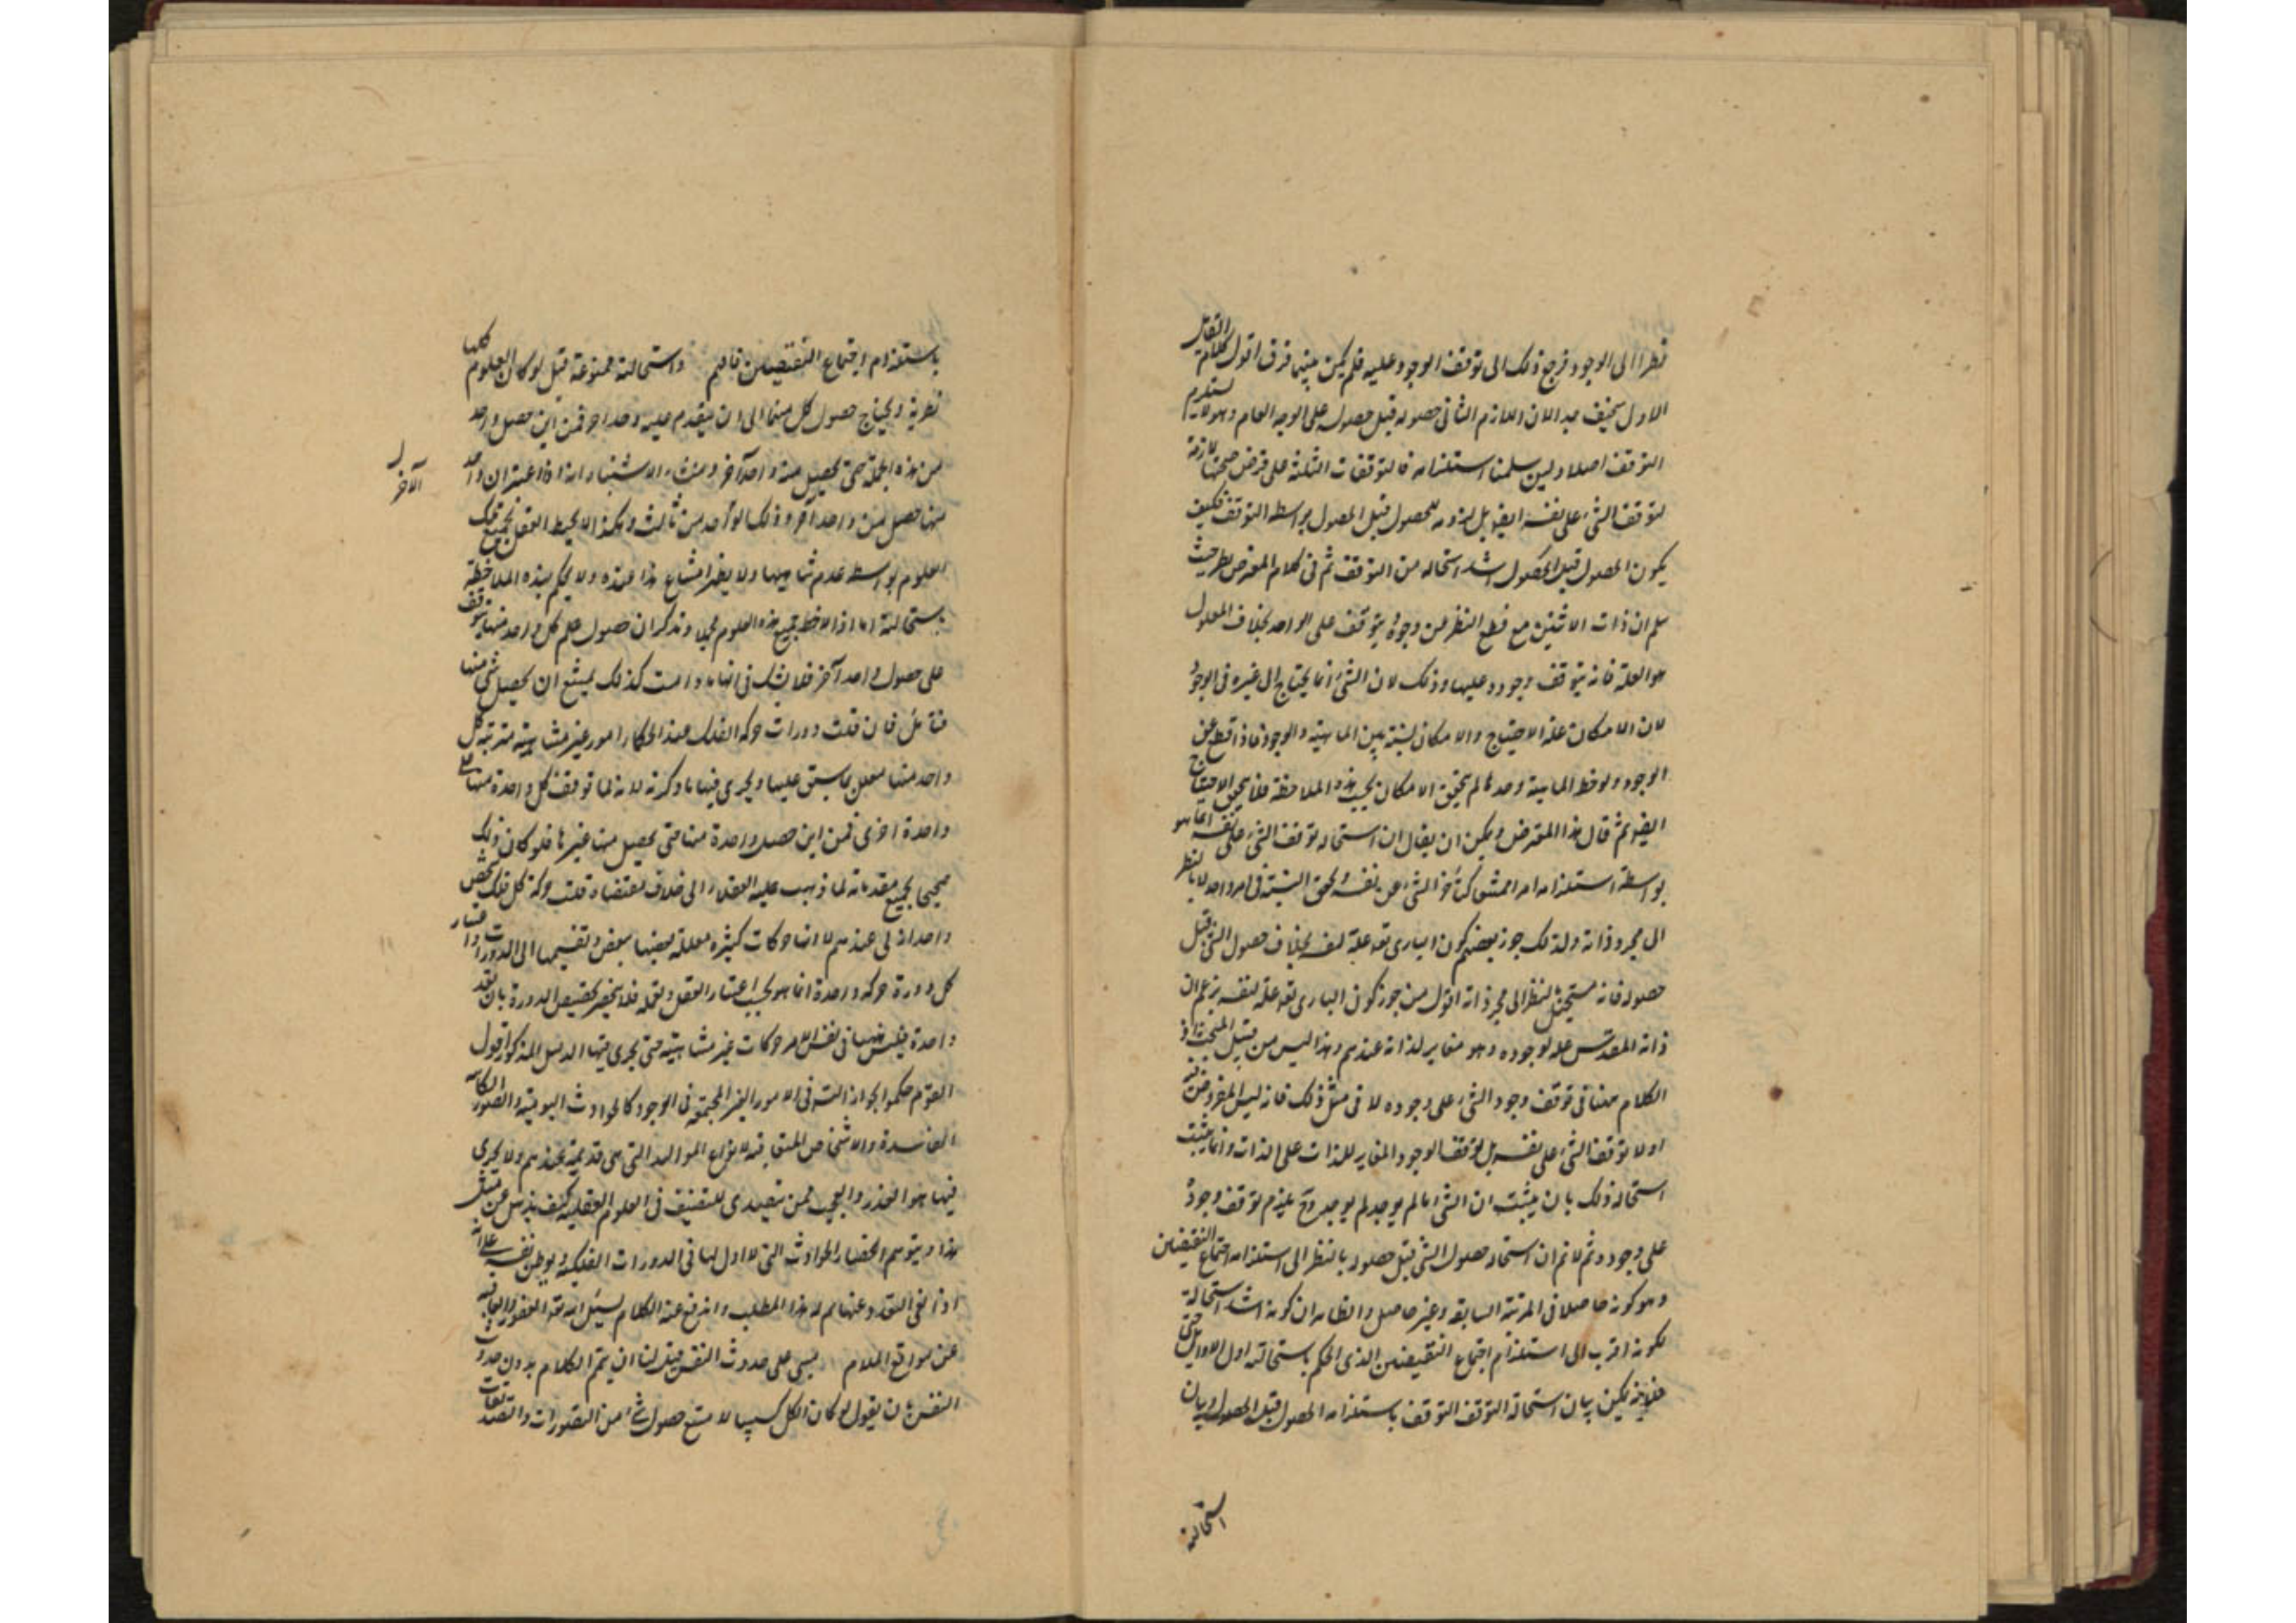 نظرا الى الوجود فرجع ذلك الى توقف الوجود عليه فلم يكن بينهما فرق اقول كلام القائل
الاول سخيف جدا لان اللازم الثانى حصوله قبل حصوله على الوجه العام وهو لا يستلزم
التوقف اصلا ولئن سلمنا استلزامه فالتوقفات الثلثة على فرض صحتها لازمة
لتوقف الشئ على نفسه ايضا بل لزومه للحصول قبل الحصول بواسطة التوقف فكيف
يكون الحصول قبل الحصول اشد استحالة من التوقف ثم فى كلام المعترض نظر حيث
سلم ان ذات الاثنين مع قطع النظر عن وجوده يتوقف على الواحد بخلاف المعلول
هو العلة فانه يتوقف وجوده عليها وذلك لان الشئ انما يحتاج الى غيره فى الوجود
لان الامكان علة الاحتياج والامكان نسبة بين الماهية والوجود فاذا قطع عن
الوجود ولوحظ الماهية وحدها لم يتحقق الامكان بحسب هذه الملاحظة فلا يتحقق الاحتياج
ايضا ثم قال هذا المعترض ويمكن ان يقال ان استحالة توقف الشئ على نفسه انما هو
بواسطة استلزامه امرا ممتنعا كتأخر الشئ عن نفسه وتحقق النسبة فى امر واحد لا بالنظر
الى مجرد ذاته ولذلك جوز بعضهم كون البارى تعه علة لنفسه بخلاف حصول الشئ قبل
حصوله فانه مستحيل بالنظر الى مجرد ذاته اقول من جوز كون البارى تعه علة لنفسه يزعم ان
ذاته المقدس علة لوجوده وهو مغاير لذاته عندهم وهذا ليس من قبيل المبحث اذ
الكلام ههنا فى توقف وجود الشئ على وجوده لا فى مثل ذلك فانه ليس المفروض فيه
اولا توقف الشئ على نفسه بل توقف الوجود المغاير للذات على الذات وانما يثبت
استحالة ذلك بان يثبت ان الشئ ما لم يوجد لم يوجد وح يلزم توقف وجوده
على وجوده ثم لا نم ان استحالة حصول الشئ قبل حصوله بالنظر الى استلزامه اجتماع النقيضين
وهو كونه حاصلا فى المرتبة السابقة وغير حاصل والظاهر ان كونه اشد استحالة
لكونه اقرب الى استلزام اجتماع النقيضين الذى الحكم باستحالته اول الاوايل حتى
يمكن بيان استحالة التوقف التوقف باستلزامه الحصول قبل الحصول وبيان
استحالته
باستلزام اجتماع النقيضين فافهم واستحالته ممنوعة قيل لو كان العلوم كلها
نظرية ويحتاج حصول كل منها الى ان يتقدم عليه واحد اخر فمن اين حصل واحد
من هذه الجملة حتى يحصل منه واحد آخر ومنشاء الاشتباه انه اذا اعتبر ان واحد
منها حصل من واحد آخر وذلك لواحد من ثالث وهكذا لا يحيط العقل بجميع تلك
الآخر
العلوم بواسطة عدم تناهيها ولا يظهر امتناع هذا عنده ولا يحكم بهذه الملاحظة
باستحالته اما اذا لاحظ جميع هذه العلوم مجملا وتذكر ان حصول علم كل واحد منها يتوقف
على حصول واحد آخر فلا يشك فى انها ما دامت كذلك يمتنع ان يحصل شئ منها
فتأمل فان قلت دورات حركة الفلك عند الحكماء امور غير متناهية مترتبة كل
واحد منها معلل بما سبق عليها ويجرى فيها ما ذكرته لانه لما توقف كل واحدة منها على
واحدة اخرى فمن اين حصل واحدة منها حتى يحصل منها غيرها فلو كان ذلك
صحيحا بجميع مقدماته لما ذهب عليه العقلاء الى خلاف مقتضاه قلت حركة كل فلك شخص
واحدانى عندهم لا انها حركات كثيرة معللة بعضها ببعض وتقسيمها الى الدورات واعتبار
كل دورة حركة واحدة انما هو بحسب اعتبار العقل
واحدة فليس ههنا فى نفس الامر حركات غير متناهية حتى يجرى فيها الدليل المذكور اقول
القوم حكموا بجواز التسه فى الامور الغير المجتمعة فى الوجود كالحوادث اليومية والصور الكائنة
الفاسدة والاشخاص المتعاقبة لانواع المواليد التى هى قديمة عندهم ولا يجرى
فيها هذا العذر والعجب ممن يتصدى للتصنيف فى العلوم العقلية كيف يذهل عن مثل
هذا ويتوهم انحصار الحوادث التى لا اول لها فى الدورات الفلكية ويوطن نفسه على انه
اذا نفى التعدد عنها تم له هذا المطلب واندفع عنه الكلام نسئل الله تعه العفو والعافية
عن مواقع الملام يبنى على حدوث النفس قيل لنا ان يتم الكلام بدون حدوث
النفس بان يقول لو كان الكل كسبيا لامتنع حصول شئ من التصورات والتصديقات